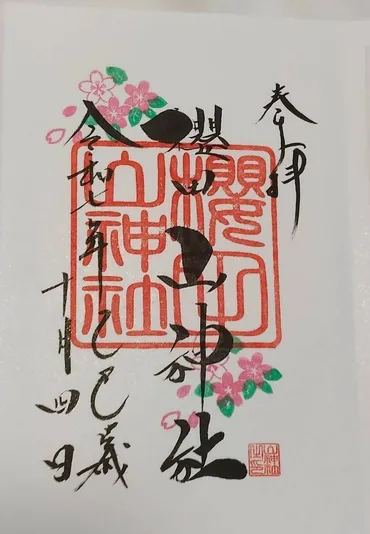 奉拝
櫻田山神社
令和七年乙巳歳
十月四日
櫻田
山神社